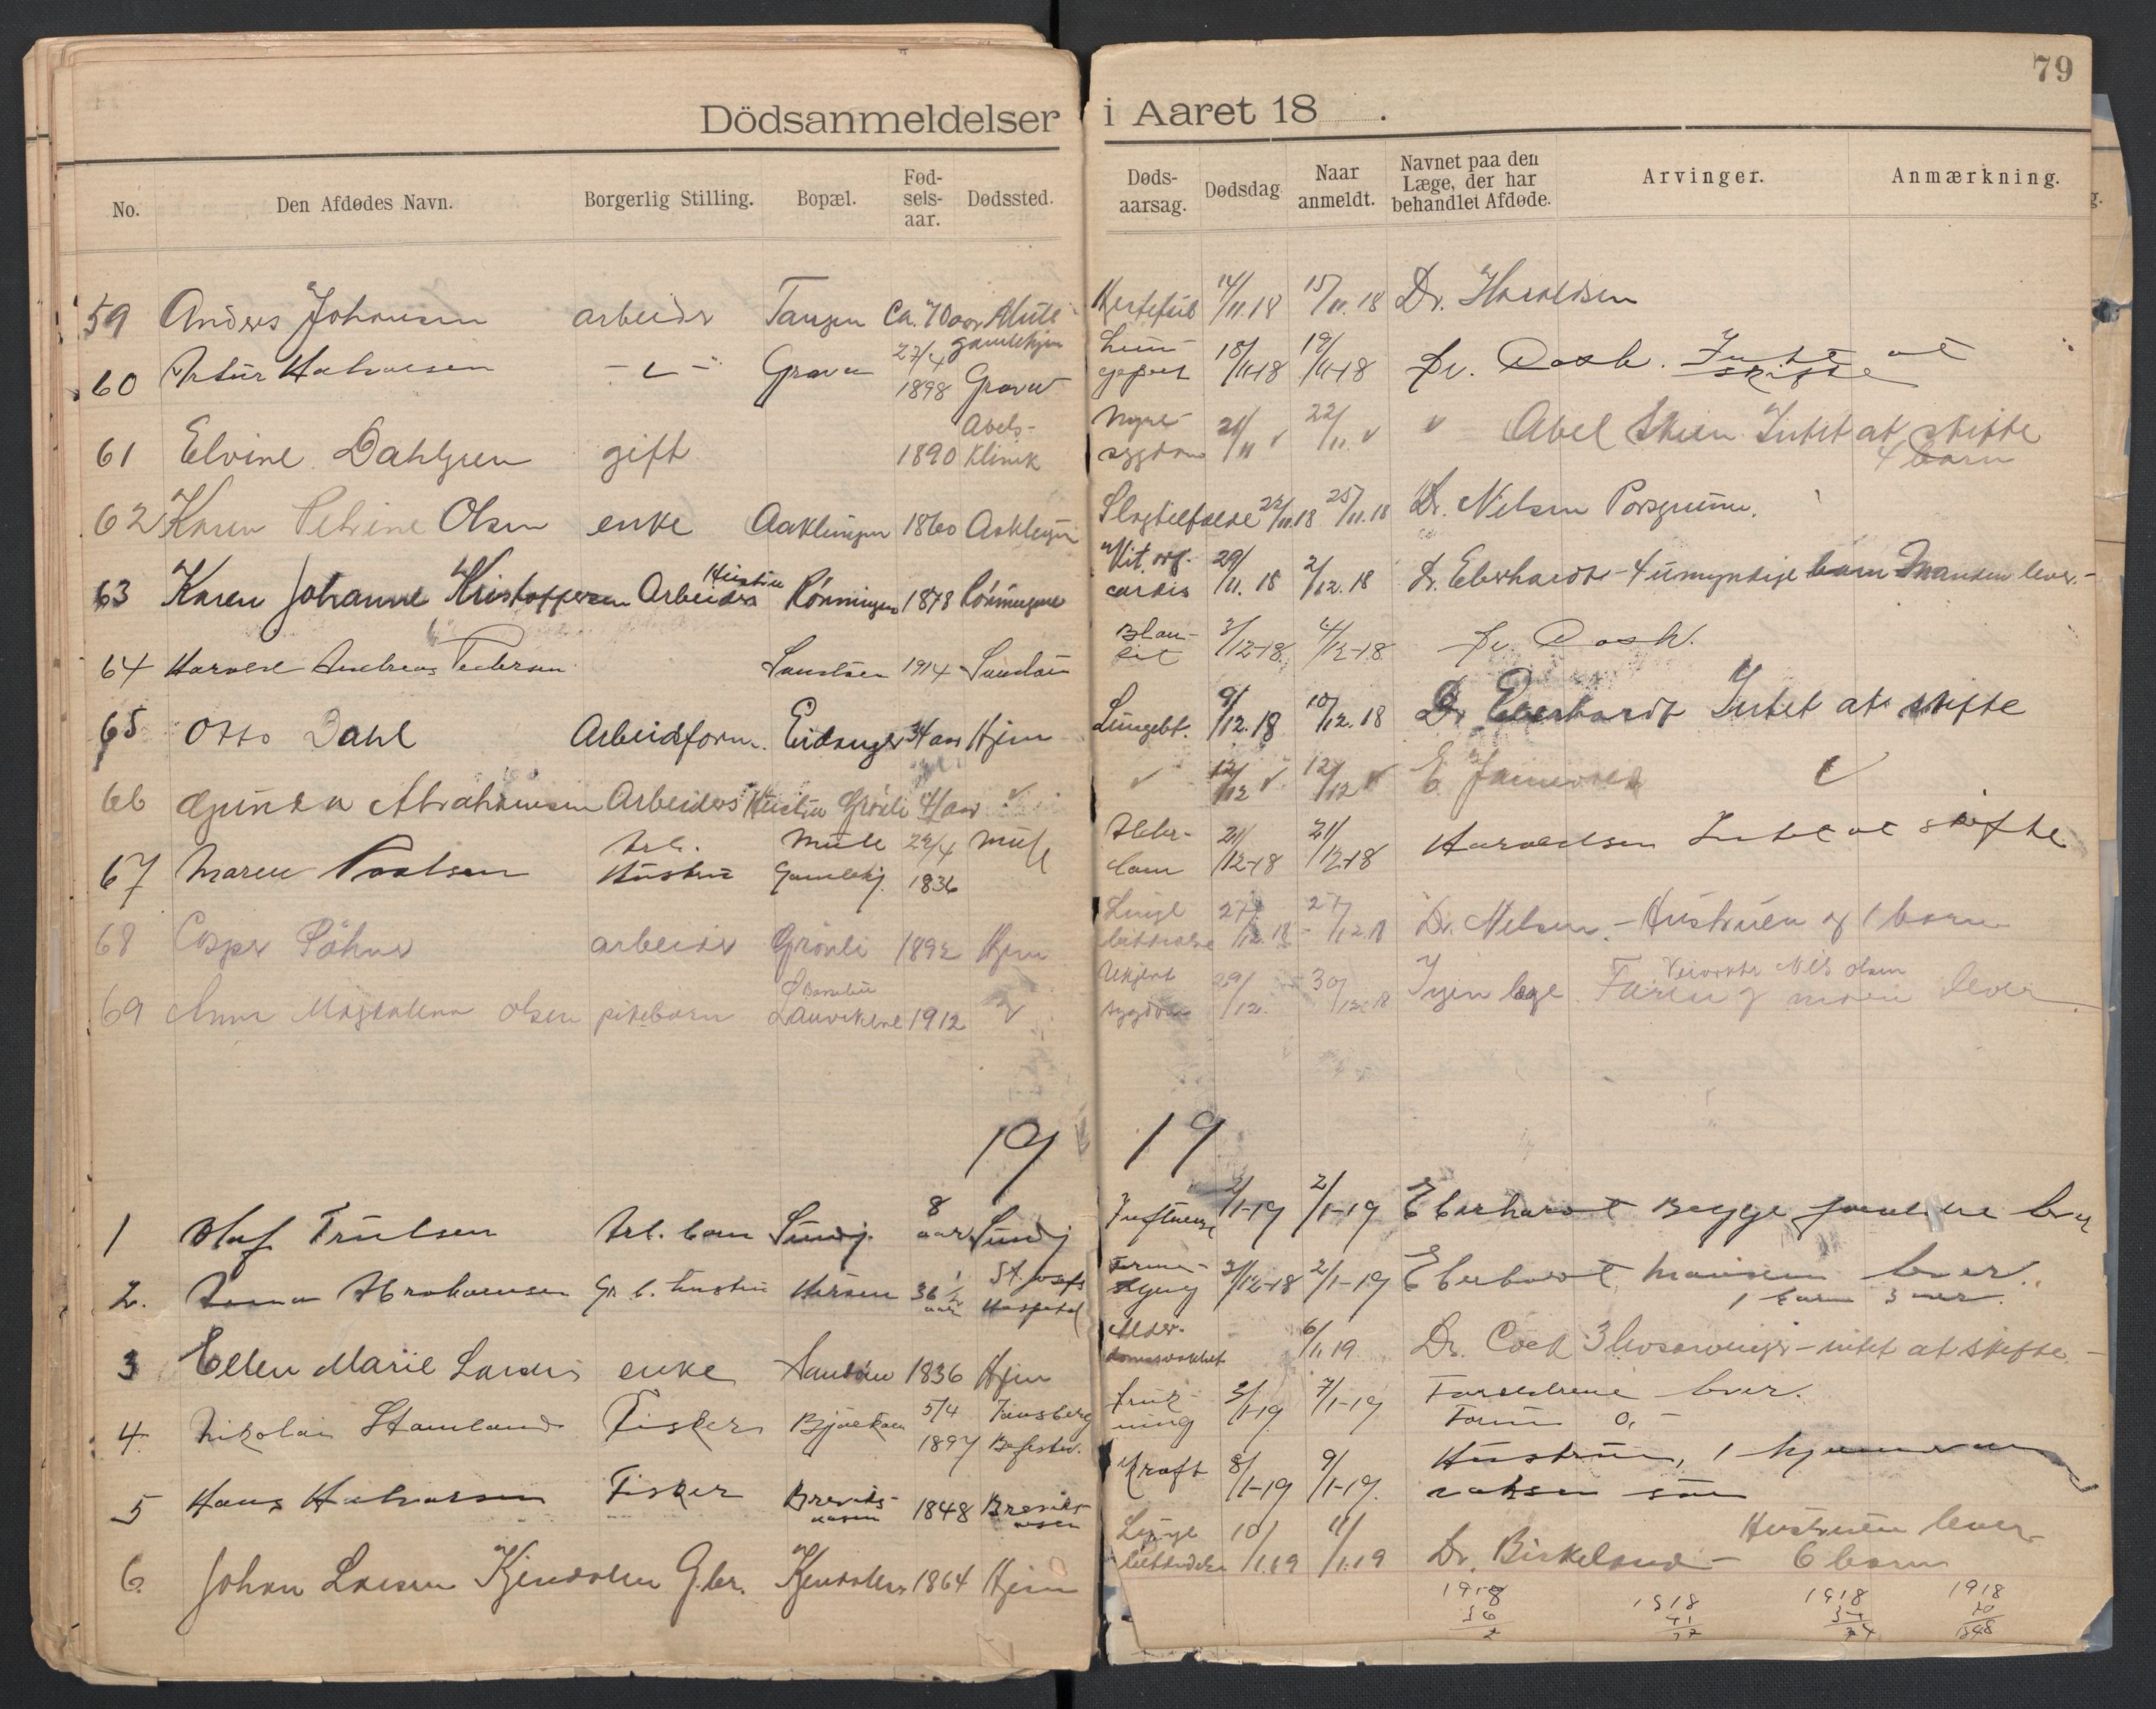 79
Dödsanmeldelser i Aaret 18 .
No. Den Afdødes Navn. Borgerlig Stilling. Bopæl. Fødselsaar. Dødssted. Dødsaarsag. Dødsdag. Naar anmeldt. Navnet paa den Læge, der har behandlet Afdøde. Arvinger. Anmærkning.
59 Anders Johansen arbeider Tangen Ca. 70 aar Mule gamlehjem 14/11.18 15/11.18 Dr. Haraldsen
60 Artur Halvorsen Grava 27/4 1898 Grava 18/11-18 19/11-18 Dr. Intet at skifte
61 Elvine Dahlgren gift 1890 Abels Klinik Nyresygdom 21/11 22/11 Abel Skien Intet at skifte 4 barn
62 Karen Petrine Olsen enke Aaklungen 1860 Aaklungen Slagtilfælde 22/11.18 25/11.18 Dr. Nilsen Porsgrunn.
63 Karen Johanne Kristoffersen Arbeiders Hustru Rönningen 1878 Rönningene Vit. org. cordis 29/11.18 2/12.18 Dr. Eberhardt - 4 umyndige barn Manden lever.-
64 Harald Andreas Pedersen Sandöen 1914 Sandöen 3/12-18 4/12-18 Dr.
65 Otto Dahl Arbeidsform. Eidanger 34 aar Hjem Lungebt. 9/12.18 10/12.18 Dr Eberhardt Intet at skifte
66 Gunda Abrahamsen Arbeiders Hustru Grönli 41 aar 12/12 12/12 E
67 Maren Paulsen Arb. Hustru Mule Gamlehj. 22/4 1836 Mule Alderdom 21/12-18 21/12-18 Haraldsen Intet at skifte
68 Casper arbeider Grönli 1892 Hjem Lungebetændelse 27/12.18 27/12.18 Dr. Nilsen - Hustruen og 1 barn
69 Anna Magdalena Olsen pikebarn 1912 Ukjent sygdom 29/12. 30/12.18 Ingen læge Nils Olsen Faren og moren lever
19 19
1 Olaf Trulsen Arb. barn Sundj. 8 aar Sundj Influensa 2/1-19 2/1-19 Eberhardt Begge forældre lever
2. Anna Abrahamsen Gr. b. hustru 36 1/2 aar St. Josefs Hospital 31/12-18 2/1-19 Eberhardt Manden lever. 1 barn 3 aar.
3 Ellen Marie Larsen enke Sandöen 1836 Hjem Alderdomssvakhet 6/1.19 Dr. Cock 3 livsarvinger - intet at skifte. -
4. Nikolai Stamland Fisker Bjørkøen 5/4 1897 Tønsberg Drukning 3/1-19 7/1-19 Forældrene lever. Formue 0,-
5 Hans Halvorsen Fisker Breviksaasen 1848 Breviksaasen Kræft 8/1-19 9/1-19. Hustru, 1 voksen søn
6. Johan Larsen Kjendalen G.br. Kjendalen 1864 Hjem Lungebetændelse 10/1.19 11/1.19 Dr. Birkeland - Hustruen lever 6 barn
1918 1918 1918 1918
36 41 34 70
2 77 84 1848